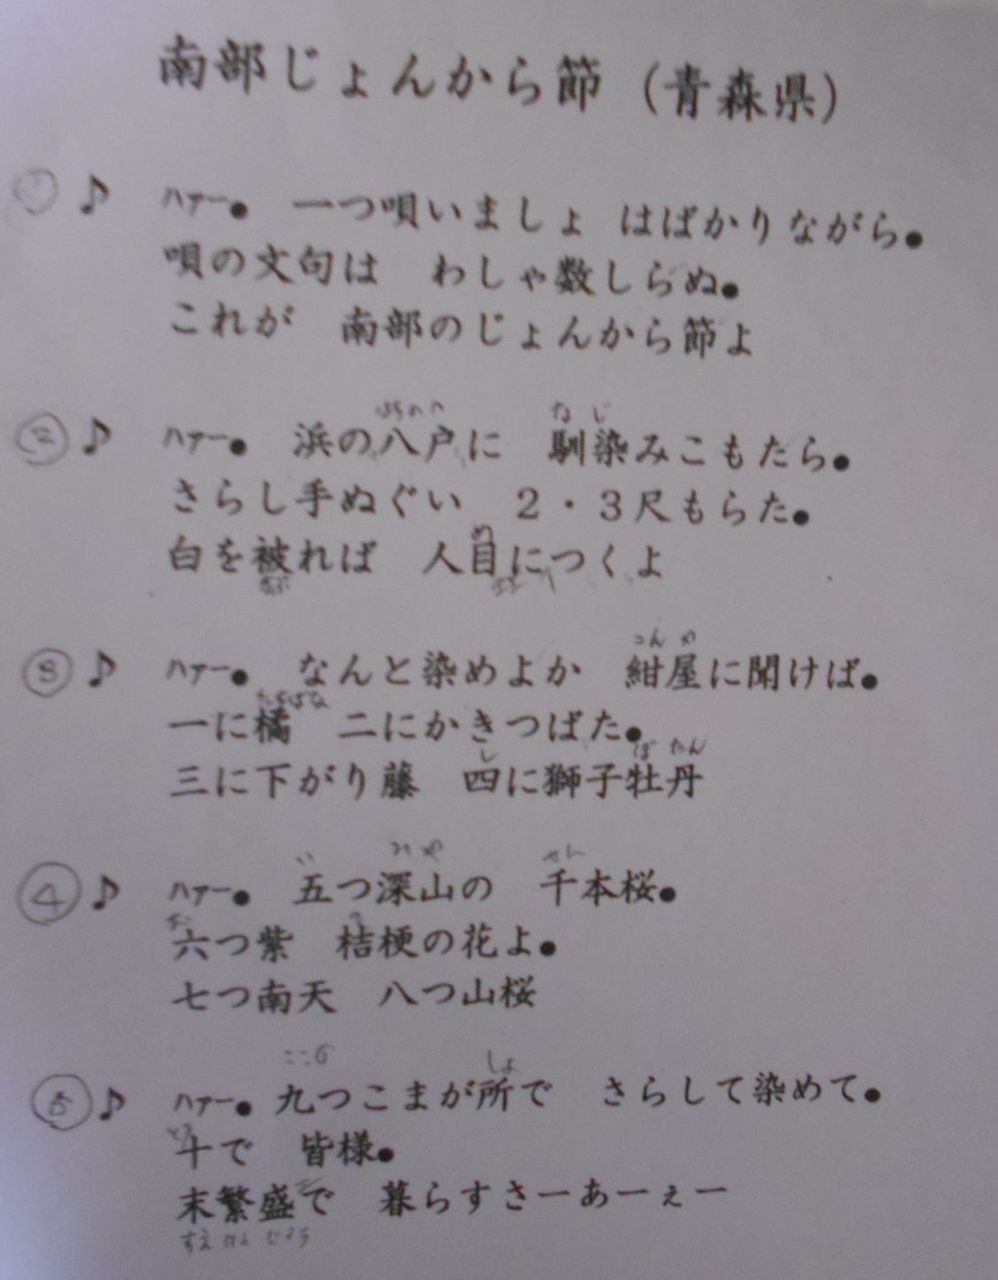 南部じょんから節（青森県）
① ♪ ハァー● 一つ唄いましょ はばかりながら●
唄の文句は わしゃ数しらぬ●
これが 南部のじょんから節よ
はちのへ なじ
② ♪ ハァー● 浜の八戸に 馴染みこもたら●
さらし手ぬぐい 2・3尺もらた●
め
白を被れば 人目につくよ
こんや
③ ♪ ハァー● なんと染めよか 紺屋に聞けば●
たちばな
一に橘 二にかきつばた●
し ぼたん
三に下がり藤 四に獅子牡丹
い みや せん
④ ♪ ハァー● 五つ深山の 千本桜●
六つ紫 桔梗の花よ●
七つ南天 八つ山桜
ここの しょ
⑤ ♪ ハァー● 九つこまが所で さらして染めて●
とう
十で 皆様●
末繁盛で 暮らすさーあーぇー
すえ はん じょう